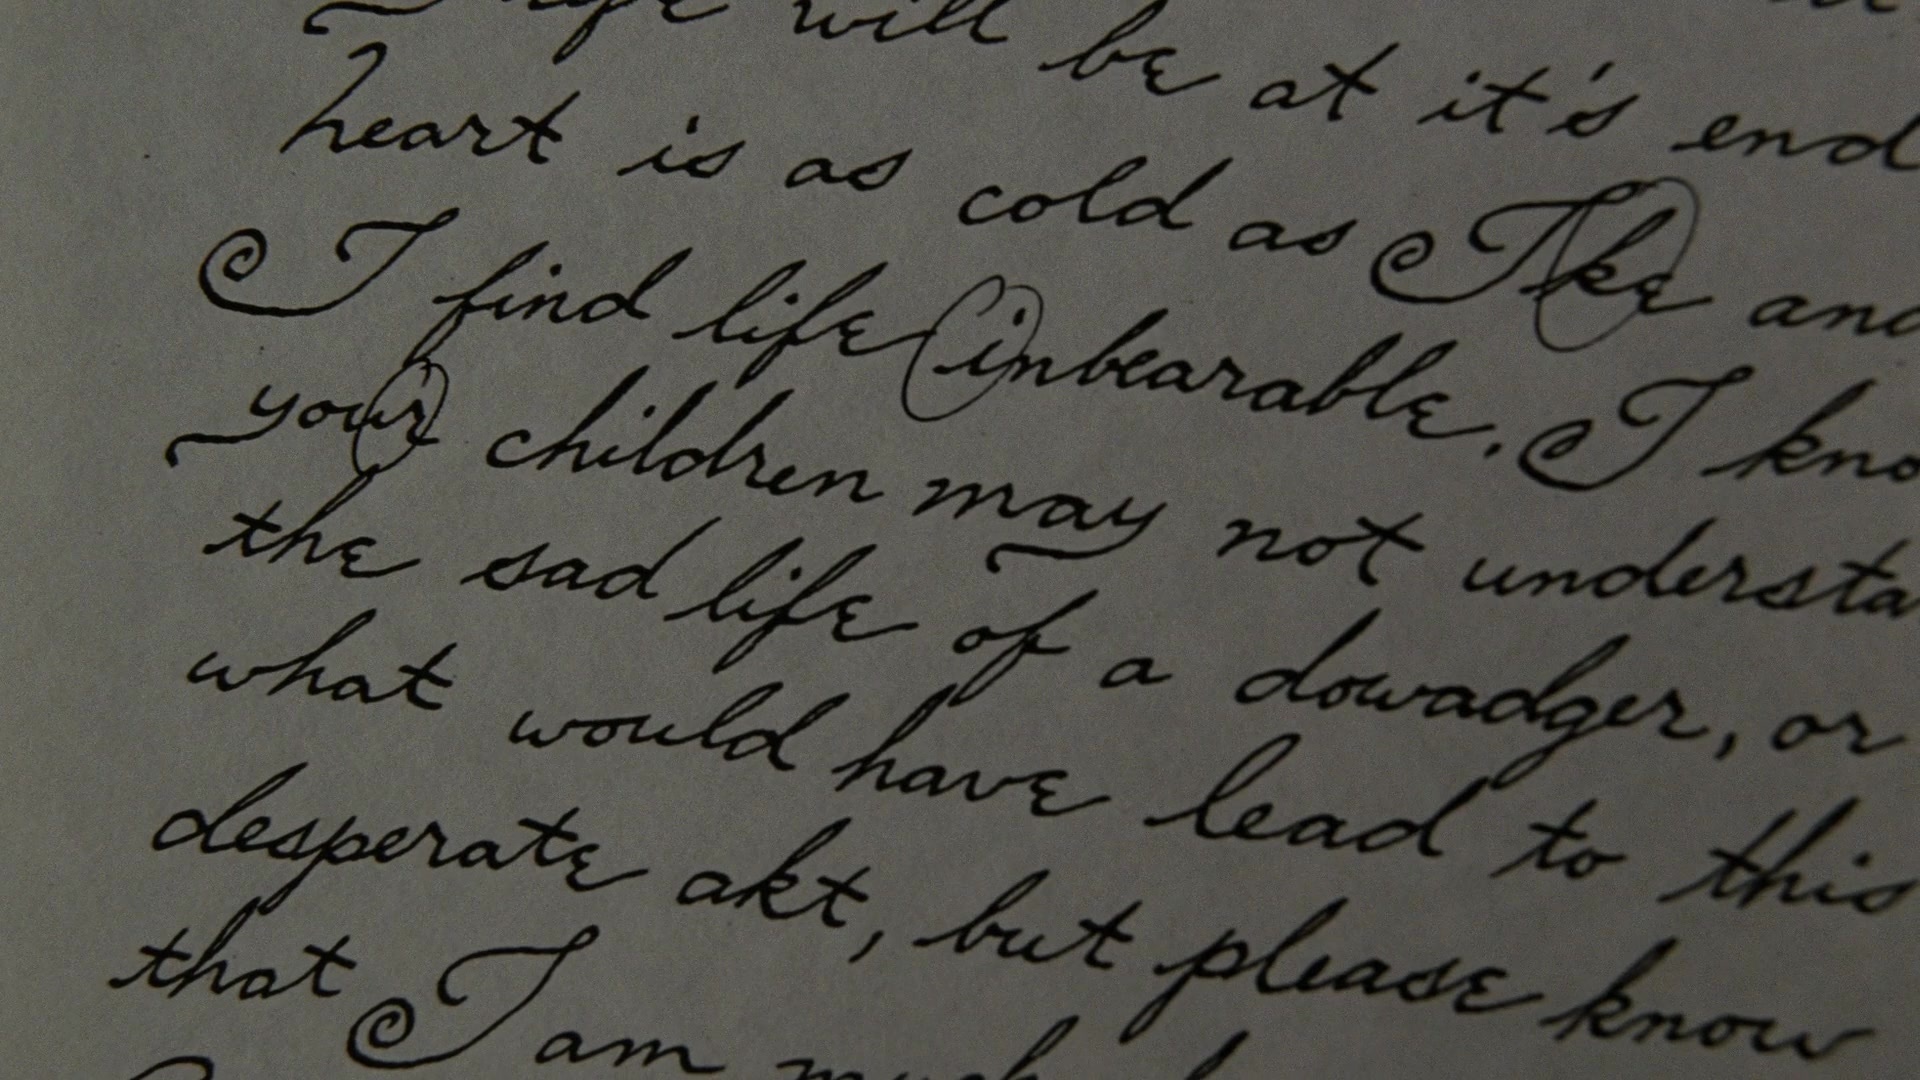 life will be at it's end
heart is as cold as Ike and
I find life inbearable. I kno
your children may not understa
the sad life of a dowadger, or
what would have lead to this
desperate akt, but please know
that I am much